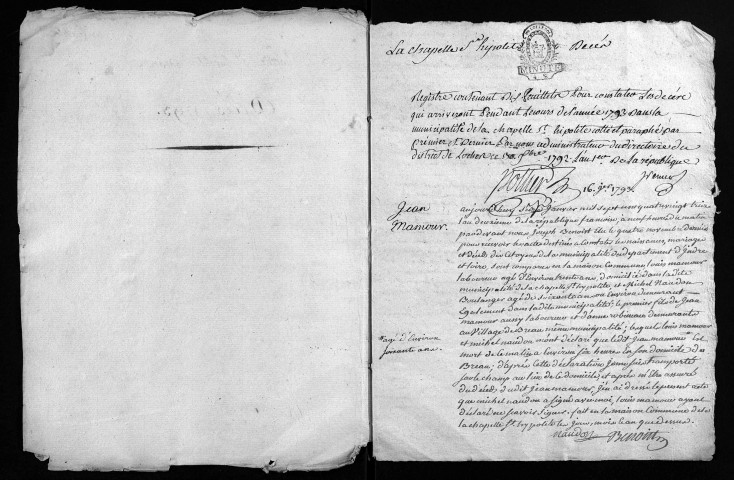 La chapelle St hipolite Decés
MINUTE
Registre contenant des feuillets Pour constater Les décés
qui arriveront Pendant Lecours del'année 1793 Dans la
municipalité de la chapelle St. hipolite cotté et paraphé par
premier et Dernier Par nous administrateur du directoire du
district de Loches ce 1792 L'an 1er De la république
16. 1793.
Jean
Mamour.
aujourd'huy Janvier mil sept cent quatre vingt treize
l'an deuxieme de la république francoise, a neuf heures du matin
pardevant nous Joseph Benoist élu le quatre novembre dernier
pour recevoir les actes destinés a constater les naissances, mariages
et décés des Citoyens de la municipalité du département d'Indre
et loire, sont comparus en la maison Commune, louis mamour
laboureur agé d'Environ trente ans, domicilié dans la dite
municipalité de la chapelle St. hypolite, et Michel Naudon
Boulanger agé de soixante ans ou Environ demeurant
Egalement dans la dite municipalité; le premier fils de Jean
mamour aussy laboureur et d'anne robineau demeurants
au Village de Breau même municipalité; lequel louis mamour
et michel naudon m'ont déclaré que ledit Jean mamour est
*agé d'Environ
soixante ans.
mort de la matinée a Environ six heures En son domicile du
Breau; d'après cette déclaration Je me suis transporté
sur le champ au lieu de ce domicile, et après m'être assuré
du décés dudit Jean mamour, J'en ai dressé le present acte
que michel naudon a signé avec moi, louis mamour ayant
déclaré ne scavoir signer. fait en la maison Commune de
la chapelle St. hypolite les Jour, mois et an que dessus.
naudon Benoist